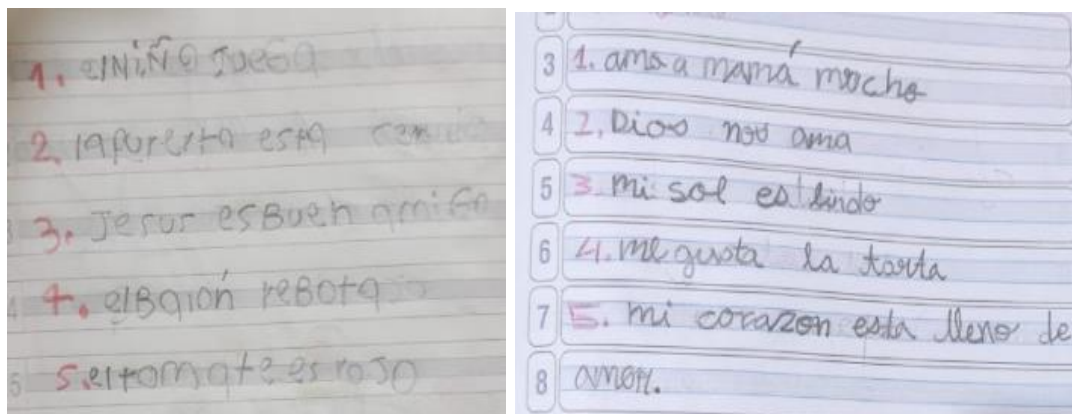 1. elNiÑO JUEGA
2. laPUerta esta
3. Jesus esBueh amiGo
4. elBalón reBota
5. eltomate es roJo
3 1. amo a mamá mucho
4 2. Dios nos ama
5 3. mi sol es lindo
6 4. me gusta la torta
7 5. mi corazon esta lleno de
8 amor.